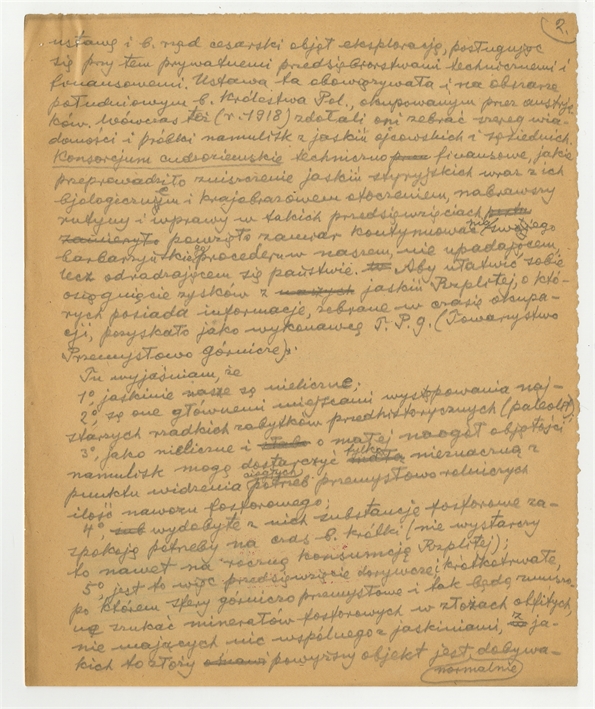 2.
ustawę i b. rząd cesarski objął eksplorację, posługując
się przy tem prywatnemi przedsiębiorstwami technicznemi i
finansowemi. Ustawa ta obowiązywała i na obszarze
południowym b. Królestwa Pol., okupowanym przez austrja-
ków. Wówczas też (r. 1918) zdołali oni zebrać szereg wia-
domości i próbki namulisk z jaskiń ojcowskich i sąsiednich.
Konsorcjum cudzoziemskie techniczno finansowe, jakie
przeprowadziło zniszczenie jaskiń styryjskich wraz z ich
biologicznym i krajobrazowem otoczeniem, nabrawszy
rutyny i wprawy w takich przedsięwzięciach
zamierzyło powzięło zamiar kontynuować swojego
barbarzyńskiego procederu w naszem, nie upadającem,
lecz odradzającem się państwie. Aby ułatwić sobie
osiągnięcie zysków z naszych jaskiń Rzplitej, o któ-
rych posiada informacje, zebrane w czasie okupa-
cji, pozyskało jako wykonawcę T. P. g. (Towarzystwo
Przemysłowo górnicze).
Tu wyjaśniam, że
1o, jaskinie nasze są nieliczne;
2o, są one głównemi miejscami występowania naj-
starszych rzadkich zabytków przedhistorycznych (paleolit)
3o, jako nieliczne i o małej naogół objętości
namulisk mogą dostarczyć tylko nieznaczną z
punktu widzenia potrzeb przemysłowo rolniczych
ilość nawozu fosforowego;
4o, wydobyte z nich substancje fosforowe za-
spokoją potrzeby na czas b. krótki (nie wystarczy
to nawet na roczną konsumcję Rzplitej);
5o, jest to więc przedsięwzięcie dorywcze, krótkotrwałe,
po którem sfery górniczo przemysłowe i tak będą zmuszo-
ne szukać minerałów fosforowych w złożach obfitych,
nie mających nic wspólnego z jaskiniami, z ja-
kich to złóż powyższy objekt jest dobywa-
normalnie